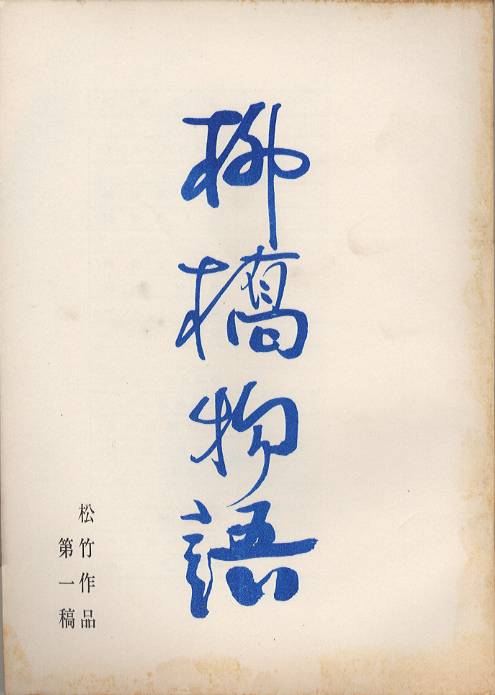 柳橋物語
松竹作品
第一稿